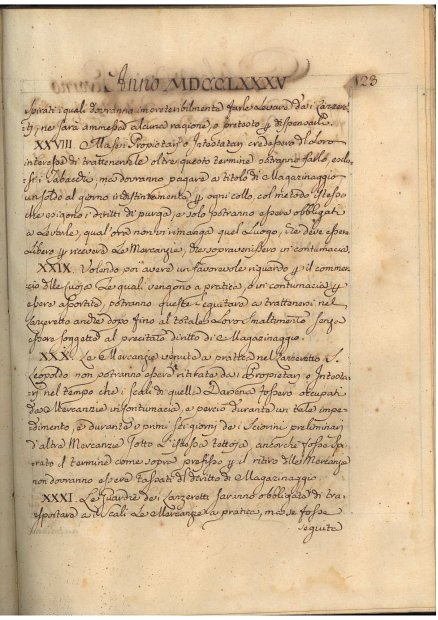 Anno MDCCLXXXV 123
spirati i quali dovranno inoretenbilmente farle levare dai Lazzere=
tti, ne sarà ammessa alcuna ragione, o pretesto p dispensarle.
XXVIII Ma se i Propietarj o Intestatarj credessero di loro
interesse di trattenerle oltre questo termine potranno farlo,
se i Tabacchi, ma dovranno pagare a titolo di Magazinaggio
un soldo al giorno indistintamente p ogni collo, col metodo istesso
che esigono i diritti di purga, e solo potranno essere obbligati
a levarle, qual'ora non vi rimanga quel Luogo, che deve essere
libero p ricevere le Mercanzie, che sopravenissero in contumacia.
XXIX. Volendo poi avere un favorevole riguardo p il commer=
cio delle suoja le quali vengono a pratica, o in contumacia p
essere asportate, potranno queste seguitare a trattenersi nel
Lazzeretto anche dopo fino al totale loro smaltimento senza
essere soggette al precitato diritto di Magazinaggio.
XXX. Le Mercanzie venute a prattica nel Lazzeretto S.
Leopoldo non potranno essere ritirate dai Propietarj o Intesta
rj nel tempo che i scali di quella Darsena fossero occupati
da Mercanzie in contumacia, e perciò durante un tale impe=
dimento, e durante i primi sei giorni dei Sciorini preliminari
d'altre Mercanzie sotto l'istessa tettoja, ancorche fosse spi=
rato il termine come sopra prefisso p il ritiro delle Mercanzie
non dovranno essere tassati del diritto di Magazinaggio.
XXXI. Le Guardie dei Lazzeretti saranno obbligate di tra=
sportare ai scali le Mercanzie a pratica, ma se fosse
seguita